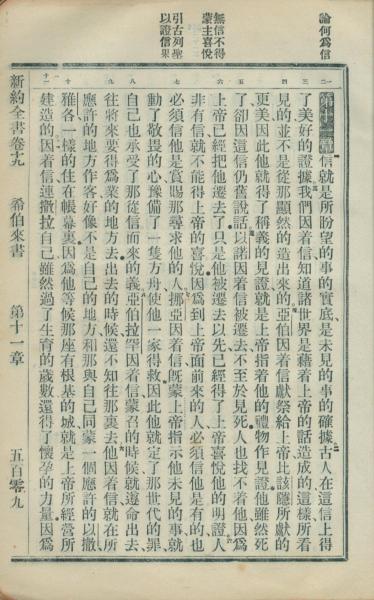 論何爲信
無信不得
蒙主喜悅
引古列聖
以證信果
一二
三
四
五
六
七
八
九
十
十一
第十一章信就是所盼望的事的實底是未見的事的確據古人在這信上得
了美好的證據我們因着信知道諸世界是藉着上帝的話造成的這樣所看
見的並不是從那顯然的造出來的亞伯因着信獻祭給上帝比該隱所獻的
更美因此他就得了稱義的見證就是上帝指着他的禮物作見證他雖然死
了卻因這信仍舊說話以諾因着信被遷去不至於見死人也找不着他因爲
上帝已經把他遷去了只是他被遷去以先已經得了上帝喜悅他的明證人
非有信就不能得上帝的喜悅因爲到上帝面前來的人必須信他是有的也
必須信他是賞賜那尋求他的人挪亞因着信旣蒙上帝指示他未見的事就
動了敬畏的心豫備了一隻方舟使他一家得救因此他就定了那世代的罪
自己也承受了那從信而來的義亞伯拉罕因着信蒙召的時候就遵命出去
往將來要得爲業的地方去出去的時候還不知往那裏去他因着信就在所
應許的地方作客好像不是自己的地方和那與自己同蒙一個應許的以撒
雅各一樣的住在帳幕裏因爲他等候那座有根基的城就是上帝所經營所
建造的因着信連撒拉自己雖然過了生育的歲數還得了懷孕的力量因爲
新約全書卷十九　希伯來書　第十一章　五百零九